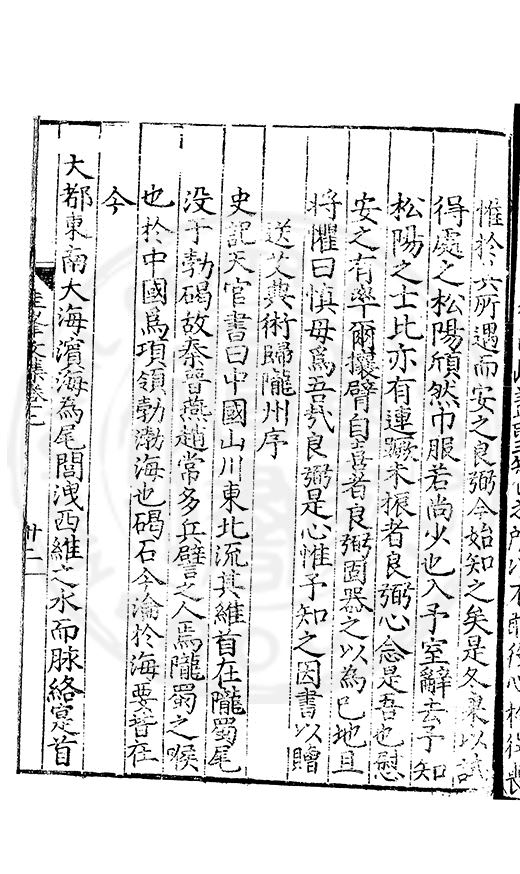 惟於六所遇而安之良弼今始知之矣是冬來以試
得處之松陽頎然巾服若尚少也入予室辭去予知
松陽之士比亦有連蹶未振者良弼心念是吾也慰
安之有率爾攘臂自喜者良弼固器之以為已地且
將懼曰慎毋爲吾氣良弼是心惟予知之因書以贈
送艾典術歸隴州序
史記天官書曰中國山川東北流其維首在隴蜀尾
没于勃碣故秦晉燕趙常多兵譬之人焉隴蜀之喉
也於中國爲項領勃渤海也碣石今淪於海要皆在
今
大都東南大海濱海為尾閭洩西維之水而脉絡寔首
文集卷之
廿二